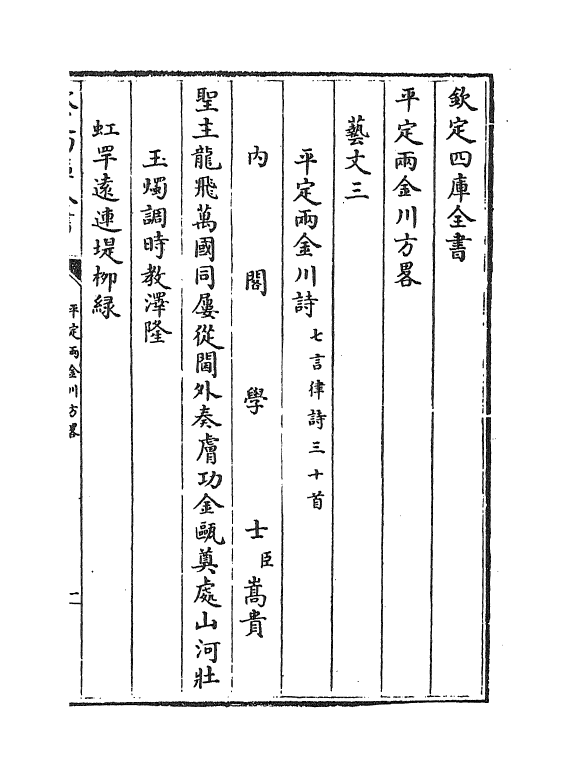 欽定四庫全書
平定兩金川方畧
藝文三
平定兩金川詩 七言律詩三十首
內閣學士臣嵩貴
聖主龍飛萬國同屢從閫外奏膚功金甌奠處山河壯
玉燭調時教澤隆
虹罕遠連堤栁緑
平定兩金川方畧
一